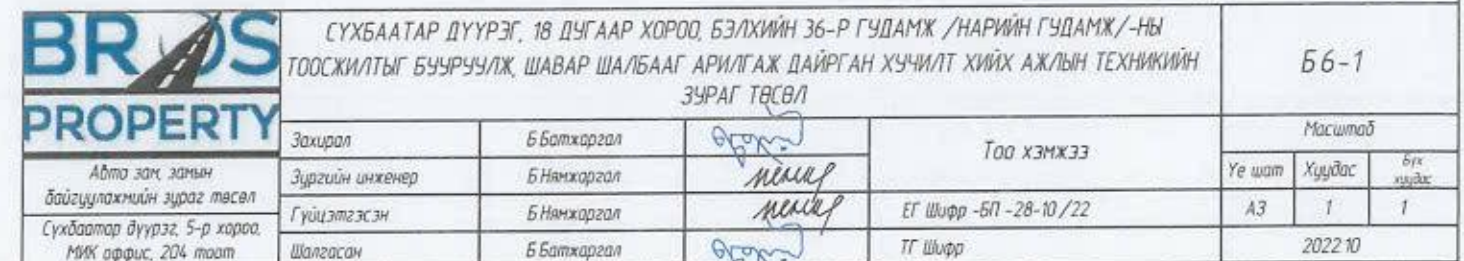 BROS
PROPERTY
Авто зам, замын
байгууламжийн зураг төсөл
Сүхбаатар дүүрэг, 5-р хороо,
МИК оффис, 204 тоот
СҮХБААТАР ДҮҮРЭГ, 18 ДУГААР ХОРОО, БЭЛХИЙН 36-Р ГУДАМЖ /НАРИЙН ГУДАМЖ/-НЫ
ТООСЖИЛТЫГ БУУРУУЛЖ, ШАВАР ШАЛБААГ АРИЛГАЖ ДАЙРГАН ХУЧИЛТ ХИЙХ АЖЛЫН ТЕХНИКИЙН
ЗУРАГ ТӨСӨЛ
Б6-1
Захирал Б.Батжаргал
Зургийн инженер Б.Нямжаргал
Гүйцэтгэсэн Б.Нямжаргал
Шалгасан Б.Батжаргал
Тоо хэмжээ
ЕГ Шифр -БП -28-10/22
ТГ Шифр
Масштаб
Үе шат Хуудас Бүх хуудас
А3 1 1
2022.10